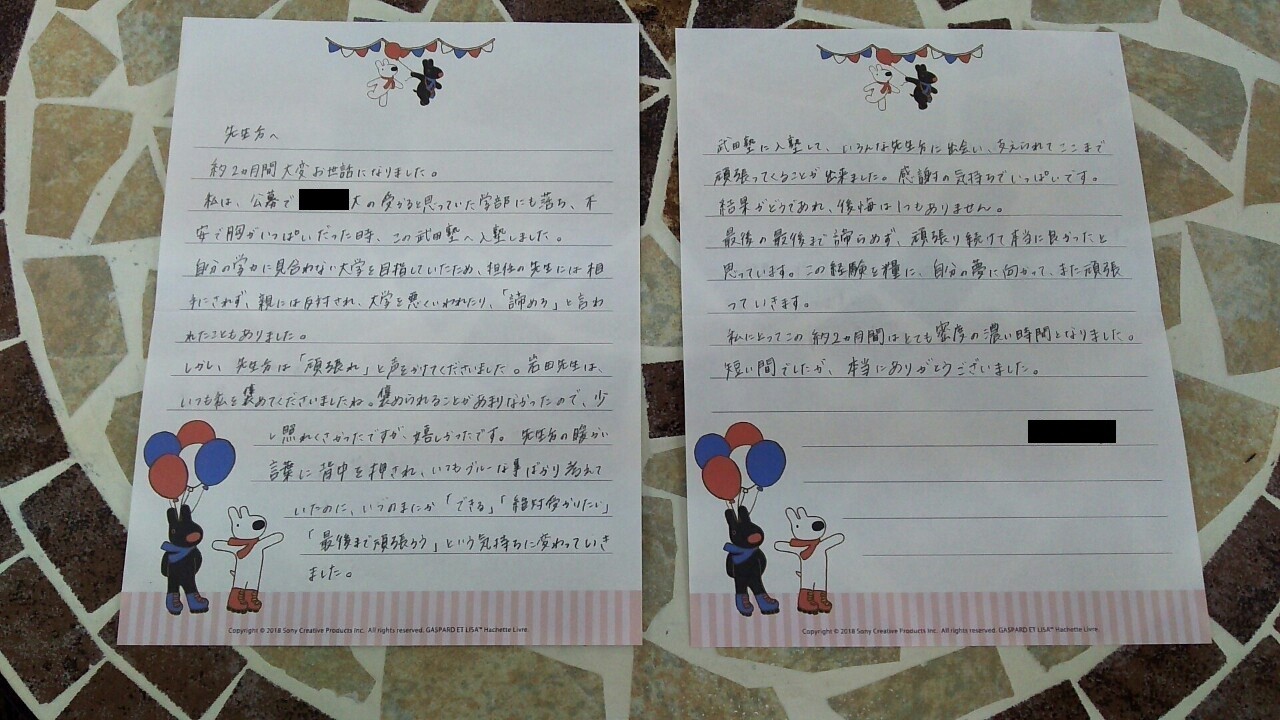 先生方へ
約2ヵ月間大変お世話になりました。
私は、公募で 大の受かると思っていた学部にも落ち、不
安で胸がいっぱいだった時、この武田塾へ入塾しました。
自分の学力に見合わない大学を目指していたため、担任の先生には相
手にされず、親には反対され、大学を悪くいわれたり、「諦めろ」と言わ
れたこともありました。
しかし、先生方は「頑張れ」と声をかけてくださいました。岩田先生は、
いつも私を褒めてくださいましたね。褒められることがあまりなかったので、少
し照れくさかったですが、嬉しかったです。先生方の暖かい
言葉に背中を押され、いつもブルーな事ばかり考えて
いたのに、いつのまにか「できる」「絶対受かりたい」
「最後まで頑張ろう」という気持ちに変わっていき
ました。
Copyright © 2018 Sony Creative Products Inc. All rights reserved. GASPARD ET LISA™ Hachette Livre.
武田塾に入塾して、いろんな先生方に出会い、支えられてここまで
頑張ってくることが出来ました。感謝の気持ちでいっぱいです。
結果がどうであれ、後悔は1つもありません。
最後の最後まで諦らめず、頑張り続けて本当に良かったと
思っています。この経験を糧に、自分の夢に向かって、また頑張
っていきます。
私にとってこの約2ヵ月間はとても密度の濃い時間となりました。
短い間でしたが、本当にありがとうございました。
Copyright © 2018 Sony Creative Products Inc. All rights reserved. GASPARD ET LISA™ Hachette Livre.